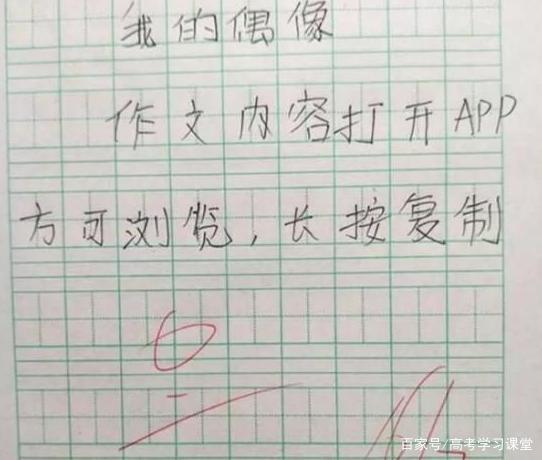 我的偶像
作文内容打开APP
方可浏览,长按复制
百家号/高考学习课堂